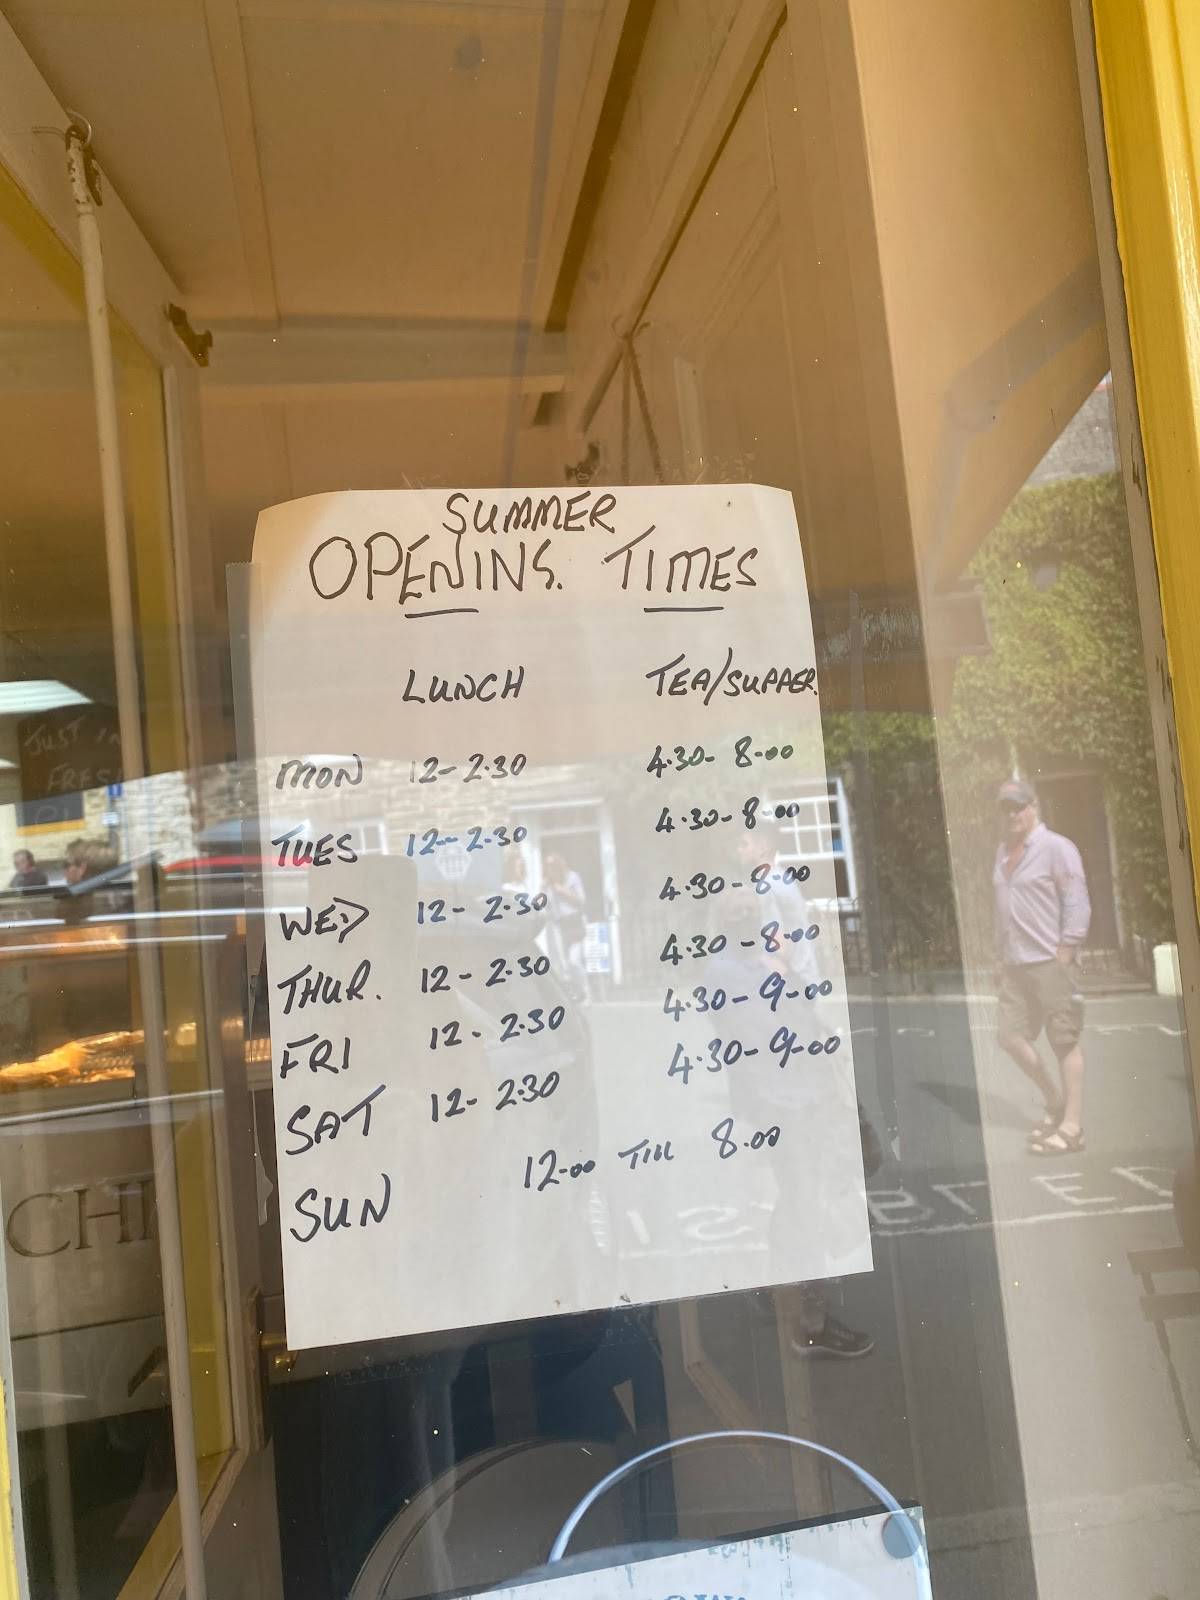 SUMMER
OPENING. TIMES
LUNCH TEA/SUPPER.
MON 12-2.30 4.30-8.00
TUES 12-2.30 4.30-8.00
WED 12-2.30 4.30-8.00
THUR. 12-2.30 4.30-8.00
FRI 12-2.30 4.30-9.00
SAT 12-2.30 4.30-9.00
SUN 12.00 TILL 8.00
JUST IN
CHI